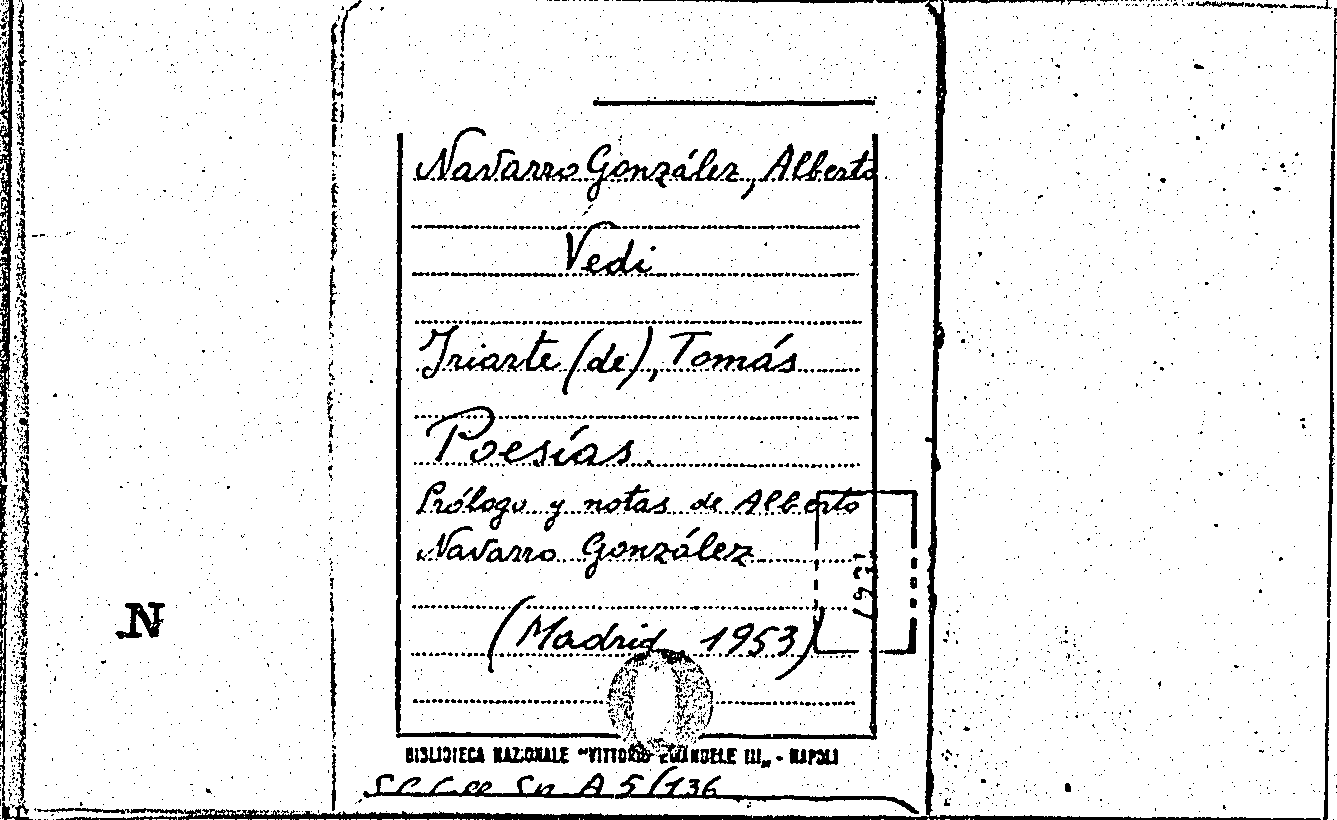 Navarro González, Alberto
Vedi
Iriarte (de), Tomás
Poesías.
Prólogo y notas de Alberto
Navarro González
(Madrid 1953)
.N
BIBLIOTECA NAZIONALE "VITTORIO EMANUELE III„ - NAPOLI
A 5/136